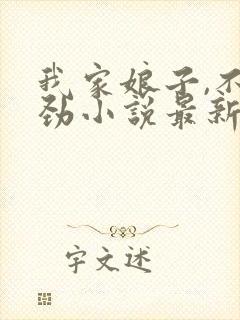 我家娘子,不
劲小说最新
宇文述